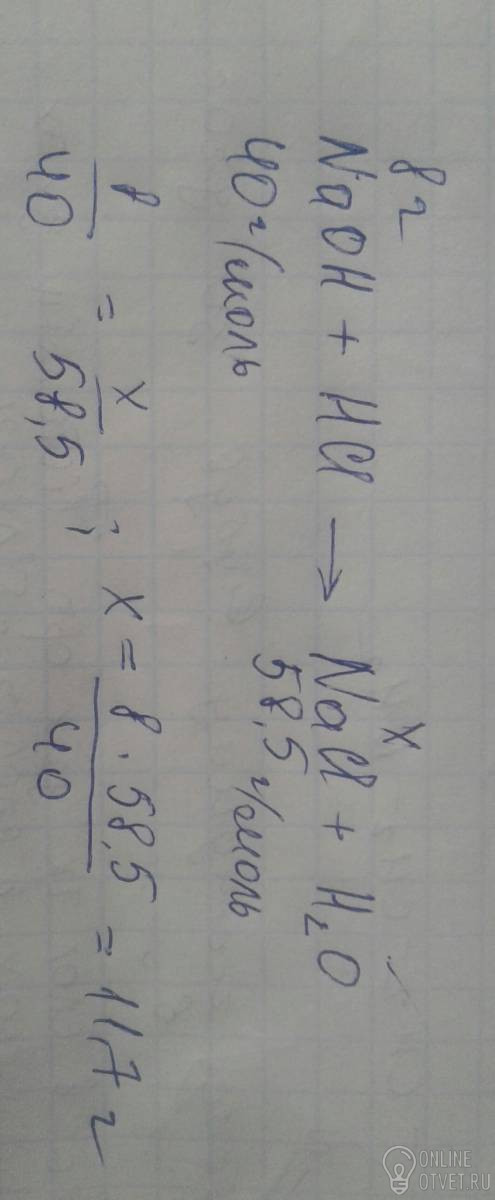 8 г                    x
NaOH + HCl → NaCl + H₂O
40 г/моль       58,5 г/моль
8/40 = x/58,5 ; x = 8 · 58,5/40 = 117 г
ONLINE
OTVET.RU